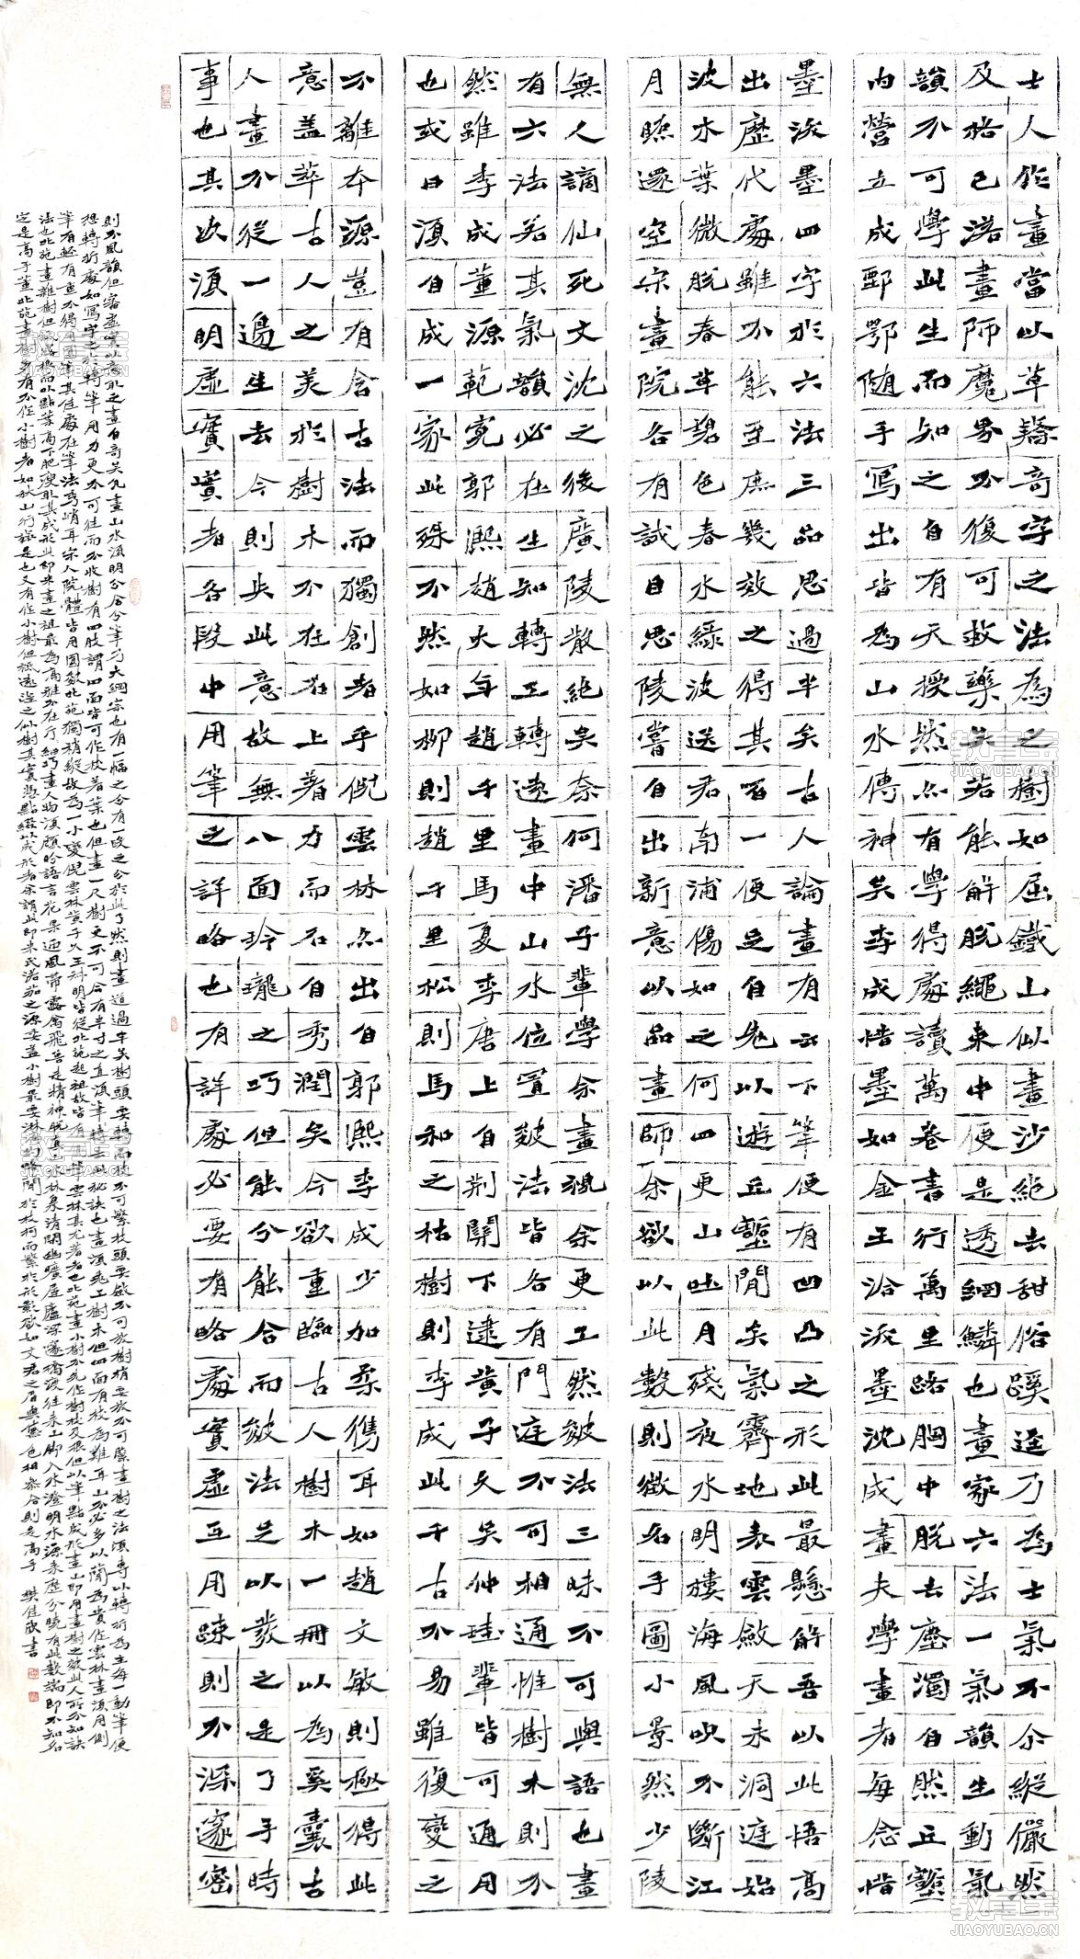 士人作畫當以草隸奇字之法為之樹如屈鐵山似畫沙絕去甜俗蹊逕乃為士氣不尒縱儼然
及格已落畫師魔界不復可救藥矣若能解脫繩束中便是透網鱗也畫家六法一氣韻生動氣
韻不可學此生而知之自有天授然亦有學得處讀萬卷書行萬里路胸中脫去塵濁自然丘壑
內營立成鄄鄂隨手寫出皆為山水傳神矣李成惜墨如金王洽潑墨沈成畫夫學畫者每念惜
墨潑墨四字於六法三品思過半矣古人論畫有云下筆便有凹凸之形此最懸解吾以此悟高
出歷代處雖不能至庶幾效之得其百一便足自先以遊丘壑間矣氣霽地表雲斂天末洞庭始
波木葉微脫春草碧色春水綠波送君南浦傷如之何四更山吐月殘夜水明樓海風吹不斷江
月照還空宋畫院各有試目思陵嘗自出新意以品畫師余欲以此數則徵名手圖小景然少陵
無人謫仙死文沈之後廣陵散絕矣奈何潘子輩學余畫視余更工然皴法三昧不可與語也畫
有六法若其氣韻必在生知轉工轉遠畫中山水位置皴法皆各有門庭不可相通惟樹木則不
然雖李成董源範寬郭熙趙大年趙千里馬夏李唐上自荊關下逮黃子久吳仲珪輩皆可通用
也或曰須自成一家此殊不然如柳則趙千里松則馬和之枯樹則李成此千古不易雖復變之
不離本源豈有舍古法而獨創者乎倪雲林亦出自郭熙李成少加柔儁耳如趙文敏則極得此
意蓋萃古人之美於樹木不在石上著力而石自秀潤矣今欲重臨古人樹木一冊以為奚囊古
人畫不從一邊生去今則失此意故無八面玲瓏之巧但能分能合而皴法足以發之是了手時
事也其次須明虛實實者各段中用筆之詳略也有詳處必要有略處實虛互用疎則不深邃密
則不風韻但審虛實以意取之畫自奇矣凡畫山水須明分合分筆乃大綱宗也有一幅之分有一段之分於此了然則畫道過半矣樹頭要轉而枝不可繁枝頭要斂不可放樹梢要放不可緊畫樹之法須專以轉折為主每一動筆便
想轉折處如寫字之於轉筆用力更不可往而不收樹有四肢謂四面皆可作枝著葉也但畫一尺樹更不可令有半寸之直須筆筆轉去此秘訣也畫須先工樹木但四面有枝為難耳山不必多以簡為貴作雲林畫須用側
筆有輕有重不得用圓筆其佳處在筆法秀峭耳宋人院體皆用圓皴北苑獨稍縱故為一小變倪雲林黃子久王叔明皆從北苑起祖故皆有側筆雲林其尤著者也北苑畫小樹不先作樹枝及根但以筆點成形畫山即用畫樹之皴此人所不知訣
法也北苑畫雜樹但只露根而以點葉高下肥瘦取其成形此即米畫之祖最為高雅不在斤斤細巧畫人物須顧盼語言花果迎風帶露禽飛獸走精神脫真山水林泉清閒幽曠屋廬深邃橋渡往來山腳入水澄明水源來歷分曉有此數端即不知名
定是高手董北苑畫樹多有不作小樹者如秋山行旅是也又有作小樹但只遠望之似樹其實憑點綴以成形者余謂此即米氏落茄之源委蓋小樹最要淋漓約略簡於枝柯而繁於形影欲如文君之眉與黛色相參合則是高手 樊佳欣書
教育宝
JIAOYUBAO.CN